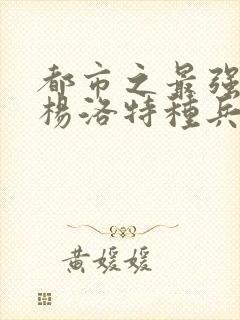 都市之最强
楊洛特種兵
黄媛媛